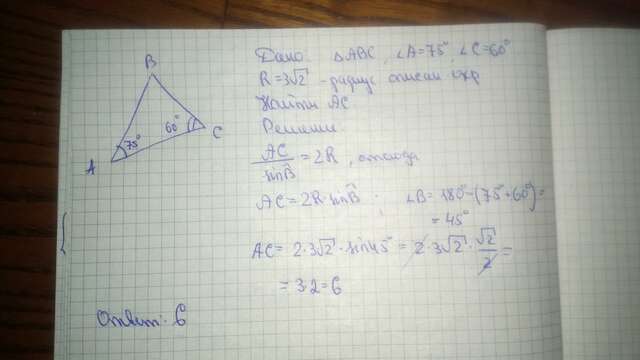 B
75°
60°
C
A
Дано: △ABC, ∠A=75°, ∠C=60°
R=3√2 - радиус описан окр
Найти AC.
Решение
AC/sinB̂ = 2R, отсюда
AC = 2R·sinB̂; ∠B = 180°-(75°+60°)=
= 45°
AC = 2·3√2·sin45° = 2·3√2·√2/2 =
= 3·2=6
Ответ: 6